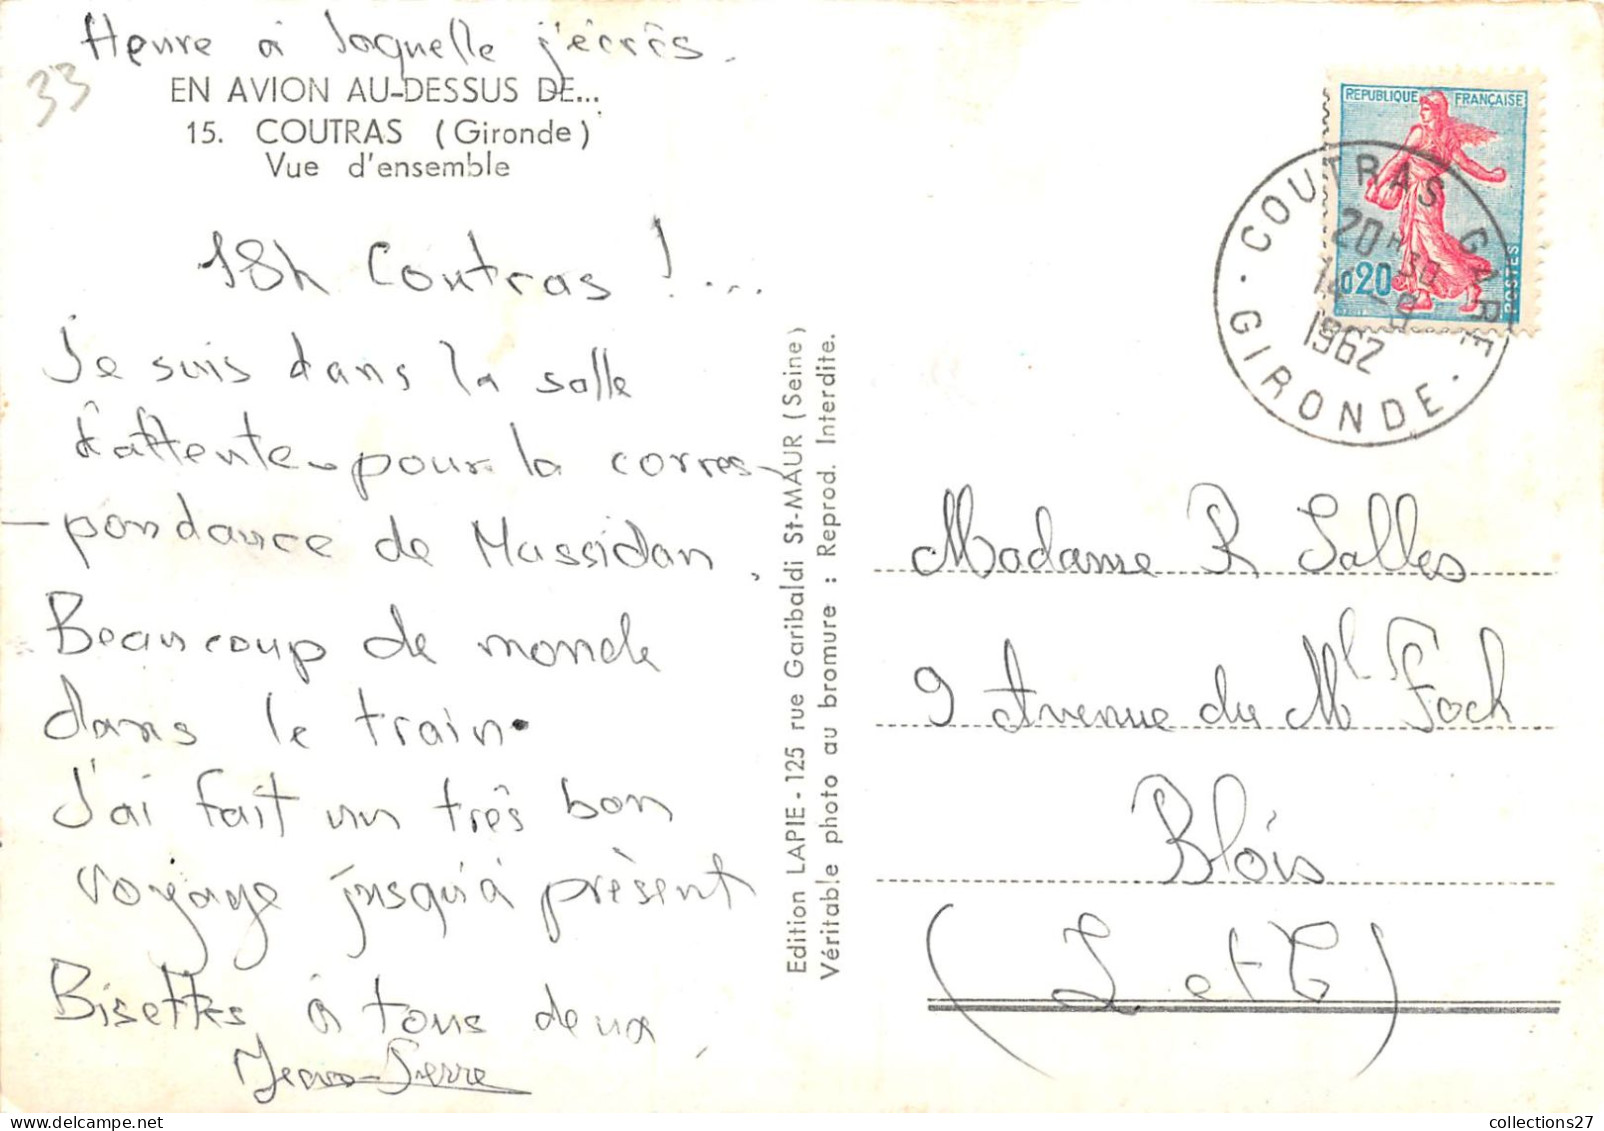 Heure à laquelle j'écris.
33
EN AVION AU-DESSUS DE...
15. COUTRAS (Gironde)
Vue d'ensemble
18h Coutras !...
Je suis dans la salle
d'attente pour la corres-
-pondance de Mussidan.
Beaucoup de monde
dans le train.
J'ai fait un très bon
voyage jusqu'à présent
Bisettes à tous deux.
Jean-Pierre
Edition LAPIE - 125 rue Garibaldi St-MAUR (Seine)
Véritable photo au bromure : Reprod. Interdite.
REPUBLIQUE FRANÇAISE
0,20
POSTES
COUTRAS GARE
20H30
14-9
1962
· GIRONDE ·
Madame R Salles
9 Avenue du Ml Foch
Blois
(L et C)
collections27